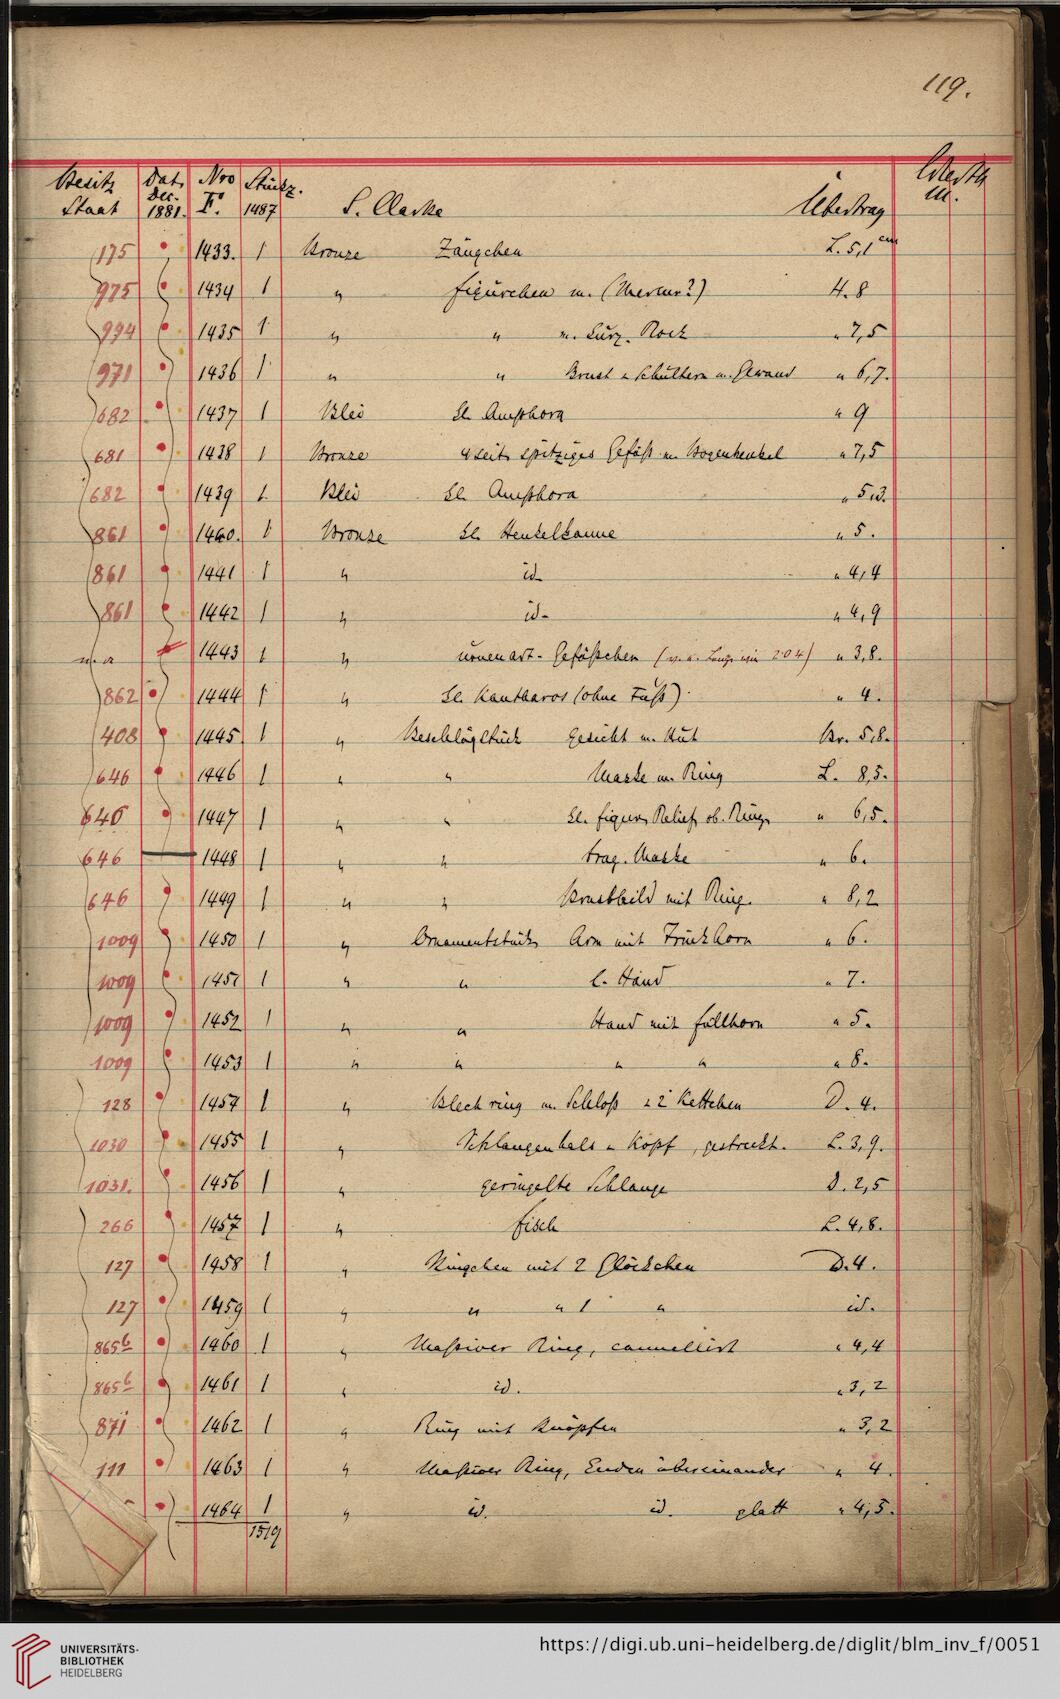 119.
Besitz Dat. Nro Stückz. Werth
Staat Dec. 1881. F. 1487 S. Clarke Übertrag M.
175 1433. 1 Bronze Zängchen L. 5,1 cm
975 1434 1 " Figürchen m. (Mercur?) H. 8
994 1435 1 " " m. kurz. Rock " 7,5
971 1436 1 " " Brust u Schultern m. Gewand " 6,7.
682 1437 1 Blei kl. Amphora " 9
681 1438 1 Bronze 4seit. spitziges Gefäß m. Bogenhenkel " 7,5
682 1439 1 Blei kl. Amphora " 5,3.
861 1440. 1 Bronze kl. Henkelkanne " 5.
861 1441 1 " id. " 4,4
861 1442 1 " id. " 4,9
n. a 1443 1 " urnenart. Gefäßchen ( 204) " 3,8.
862 1444 1 " kl. Kantharos (ohne Fuß). " 4.
408 1445. 1 " Beschlägstück Gesicht m. Hut Br. 5,8.
646 1446 1 " " Maske m. Ring L. 8,5.
646 1447 1 " " kl. figur. Relief ob. Ring " 6,5.
646 1448 1 " " trag. Maske " 6.
646 1449 1 " " Brustbild mit Ring. " 8,2
1009 1450 1 " Ornamentstück Arm mit Trinkhorn " 6.
1009 1451 1 " " l. Hand " 7.
1009 1452 1 " " Hand mit Füllhorn " 5.
1009 1453 1 " " " " " 8.
128 1454 1 " Blechring m. Schloß u 2 Kettchen D. 4.
1030 1455 1 " Schlangenhals u Kopf, gestreckt. L. 3,9.
1031. 1456 1 " geringelte Schlange D. 2,5
266 1457 1 " Fisch L. 4,8.
127 1458 1 " Ringchen mit 2 Glöckchen D. 4.
127 1459 1 " " " 1 " id.
865b 1460 1 " Massiver Ring, cannellirt " 4,4
865b 1461 1 " id. " 3,2
871 1462 1 " Ring mit Knöpfen " 3,2
111 1463 1 " Massiver Ring, Enden übereinander " 4.
1464 1 " id. id. glatt " 4,5.
1519
UNIVERSITÄTS-
BIBLIOTHEK
HEIDELBERG
https://digi.ub.uni-heidelberg.de/diglit/blm_inv_f/0051